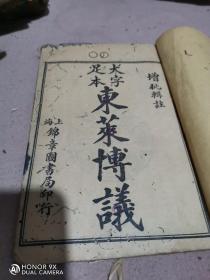 增批輯註
大字
足本
東萊博議
上海
錦章圖書局印行